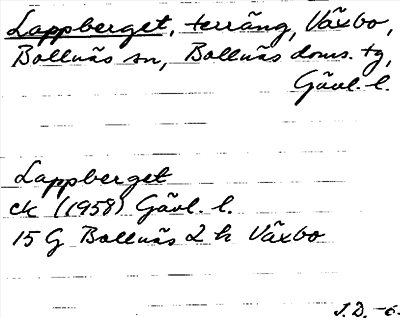 Lappberget, terräng, Växbo,
Bollnäs sn, Bollnäs doms. tg,
Gävl. l.
Lappberget
ek (1958) Gävl. l.
15 G Bollnäs 2 h Växbo
J.D. -6